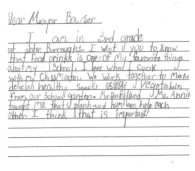 Dear Mayor Bowser
I am in 3rd grade
at John Burroughs. I want you to know
that food prints is one of my favorite things
about my school. I love when I cook
with my classmates. We work together to make
delicious healthy snacks using vegetables
from our school garden. Ms.
taught me that plants and humans help each
other. I think that is important.